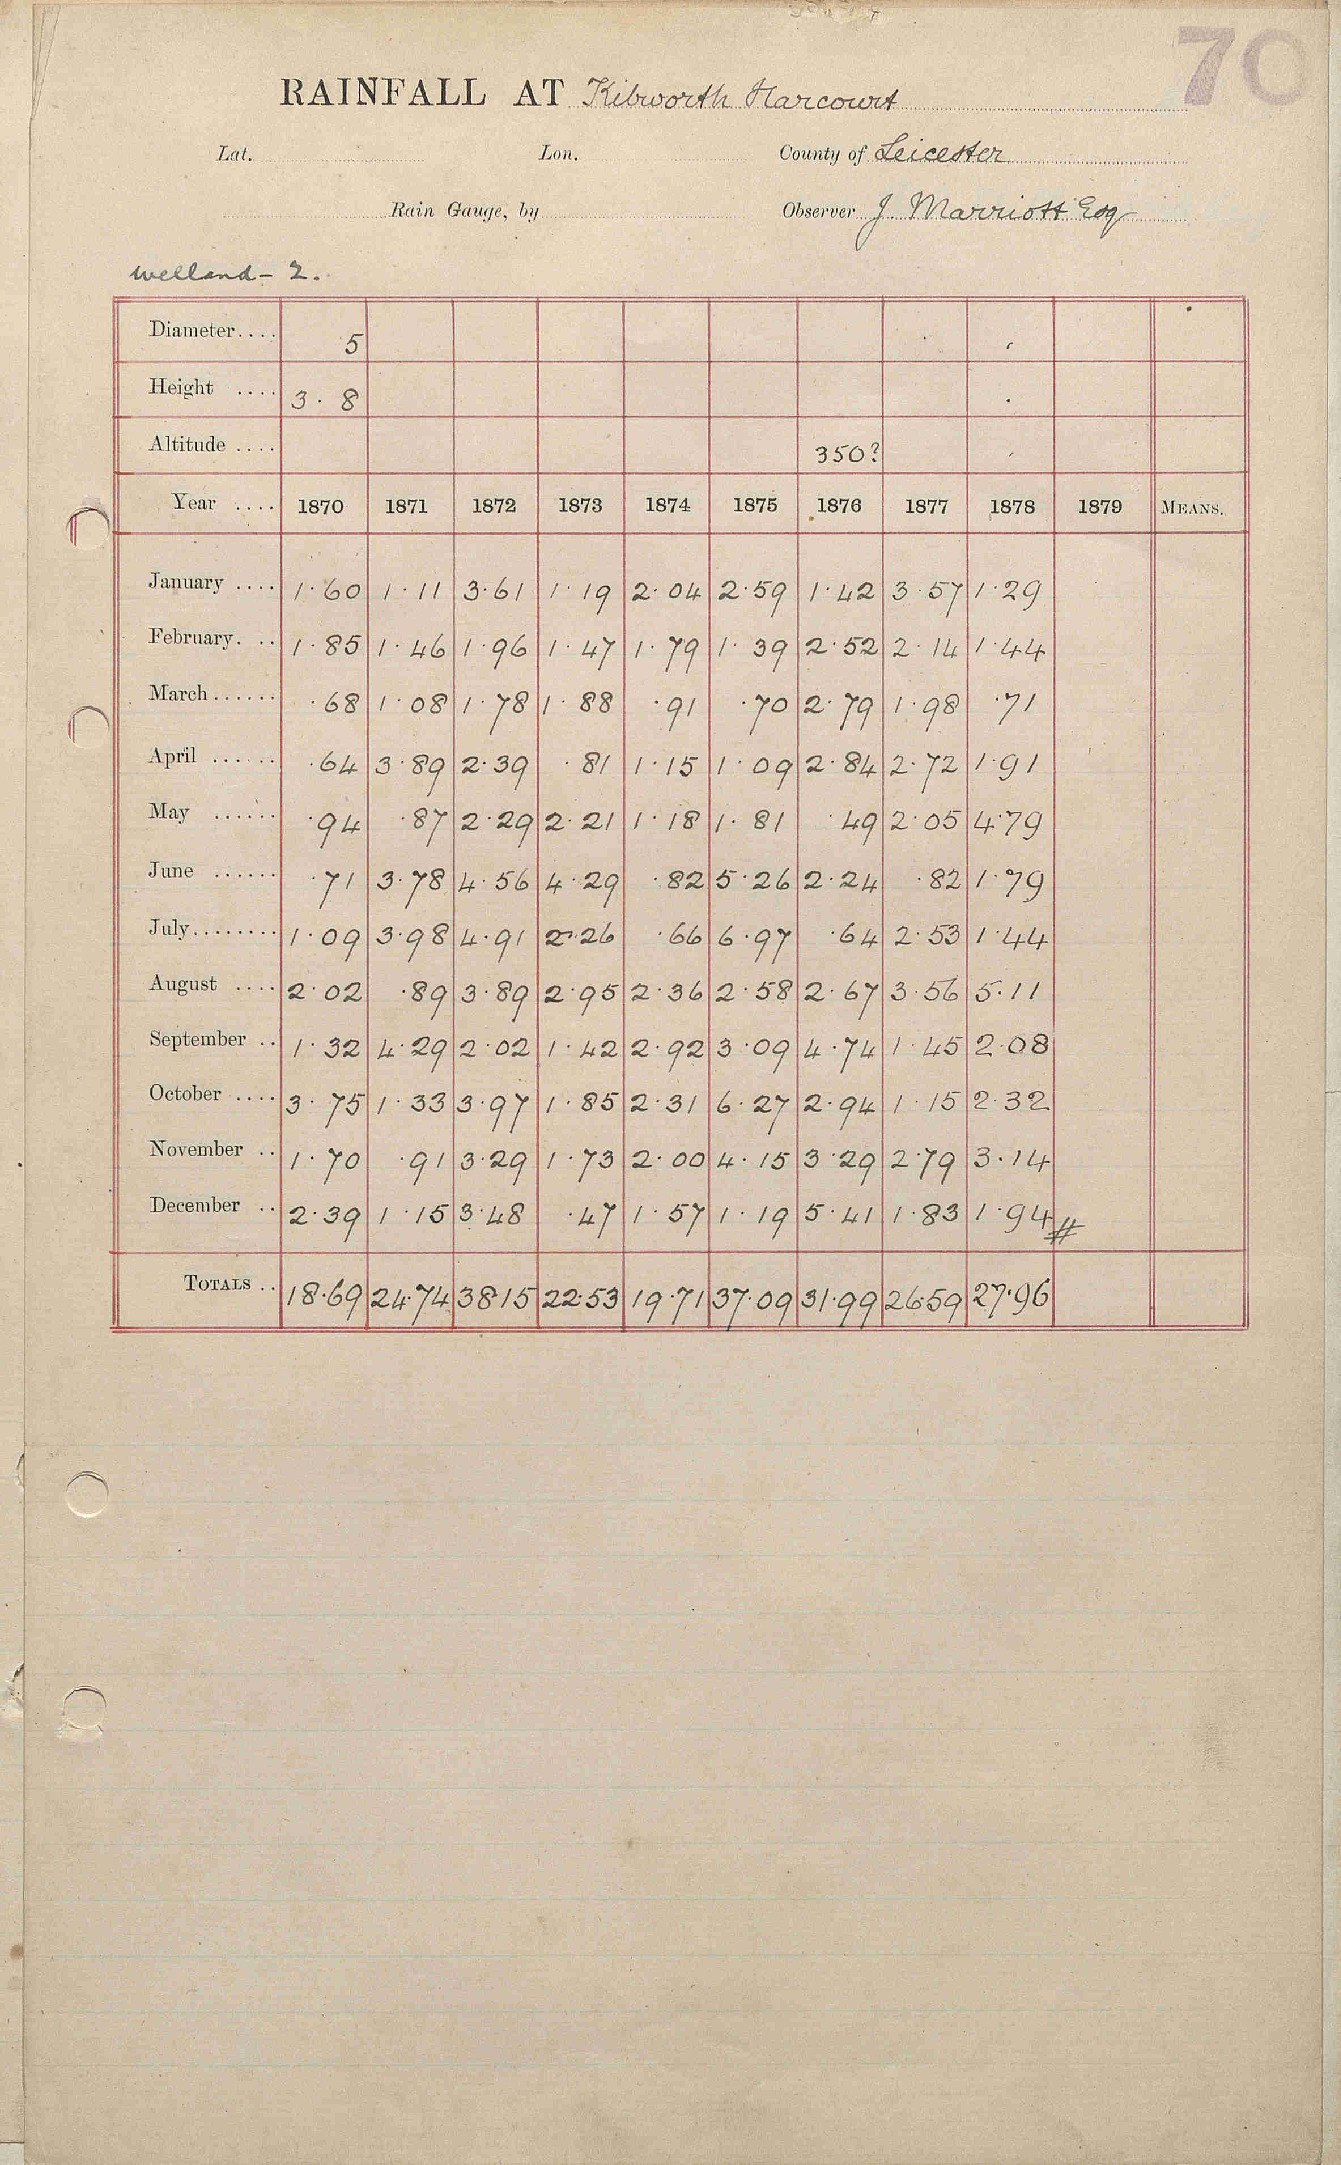 70
RAINFALL AT Kibworth Harcourt
Lat. Lon. County of Leicester
Rain Gauge, by Observer J. Marriott Esq
Welland - 2.
Diameter.... 5
Height .... 3. 8
Altitude .... 350?
Year .... 1870 1871 1872 1873 1874 1875 1876 1877 1878 1879 MEANS.
January .... 1.60 1.11 3.61 1.19 2.04 2.59 1.42 3.57 1.29
February. .. 1.85 1.46 1.96 1.47 1.79 1.39 2.52 2.14 1.44
March...... .68 1.08 1.78 1.88 .91 .70 2.79 1.98 .71
April ...... .64 3.89 2.39 .81 1.15 1.09 2.84 2.72 1.91
May ...... .94 .87 2.29 2.21 1.18 1.81 .49 2.05 4.79
June ...... .71 3.78 4.56 4.29 .82 5.26 2.24 .82 1.79
July........ 1.09 3.98 4.91 2.26 .66 6.97 .64 2.53 1.44
August .... 2.02 .89 3.89 2.95 2.36 2.58 2.67 3.56 5.11
September .. 1.32 4.29 2.02 1.42 2.92 3.09 4.74 1.45 2.08
October .... 3.75 1.33 3.97 1.85 2.31 6.27 2.94 1.15 2.32
November .. 1.70 .91 3.29 1.73 2.00 4.15 3.29 2.79 3.14
December .. 2.39 1.15 3.48 .47 1.57 1.19 5.41 1.83 1.94 #
TOTALS .. 18.69 24.74 38.15 22.53 19.71 37.09 31.99 26.59 27.96